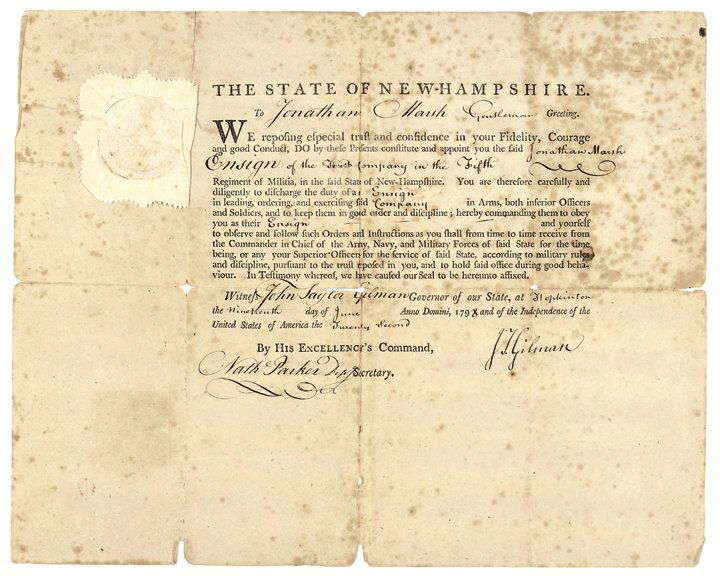 THE STATE OF NEW-HAMPSHIRE.
To Jonathan Marsh Gentleman Greeting.
WE reposing eſpecial truſt and confidence in your Fidelity, Courage
and good Conduct, DO by theſe Preſents conſtitute and appoint you the ſaid Jonathan Marsh
Ensign of the First Company in the Fifth
Regiment of Militia, in the ſaid State of New-Hampſhire. You are therefore carefully and
diligently to diſcharge the duty of a Ensign
in leading, ordering, and exerciſing ſaid Company in Arms, both inferior Officers
and Soldiers, and to keep them in good order and diſcipline; hereby commanding them to obey
you as their Ensign and yourſelf
to obſerve and follow ſuch Orders and Inſtructions as you ſhall from time to time receive from
the Commander in Chief of the Army, Navy, and Military Forces of ſaid State for the time
being, or any your Superior Officers for the ſervice of ſaid State, according to military rules
and diſcipline, purſuant to the truſt repoſed in you, and to hold ſaid office during good beha-
viour. In Teſtimony whereof, we have cauſed our Seal to be hereunto affixed.
Witneſs John Taylor Gilman Governor of our State, at Hopkinton
the Nineteenth day of June Anno Domini, 1798 and of the Independence of the
United States of America the Twenty Second
By His Excellency's Command,
J T Gilman
Nath Parker Depy Secretary.